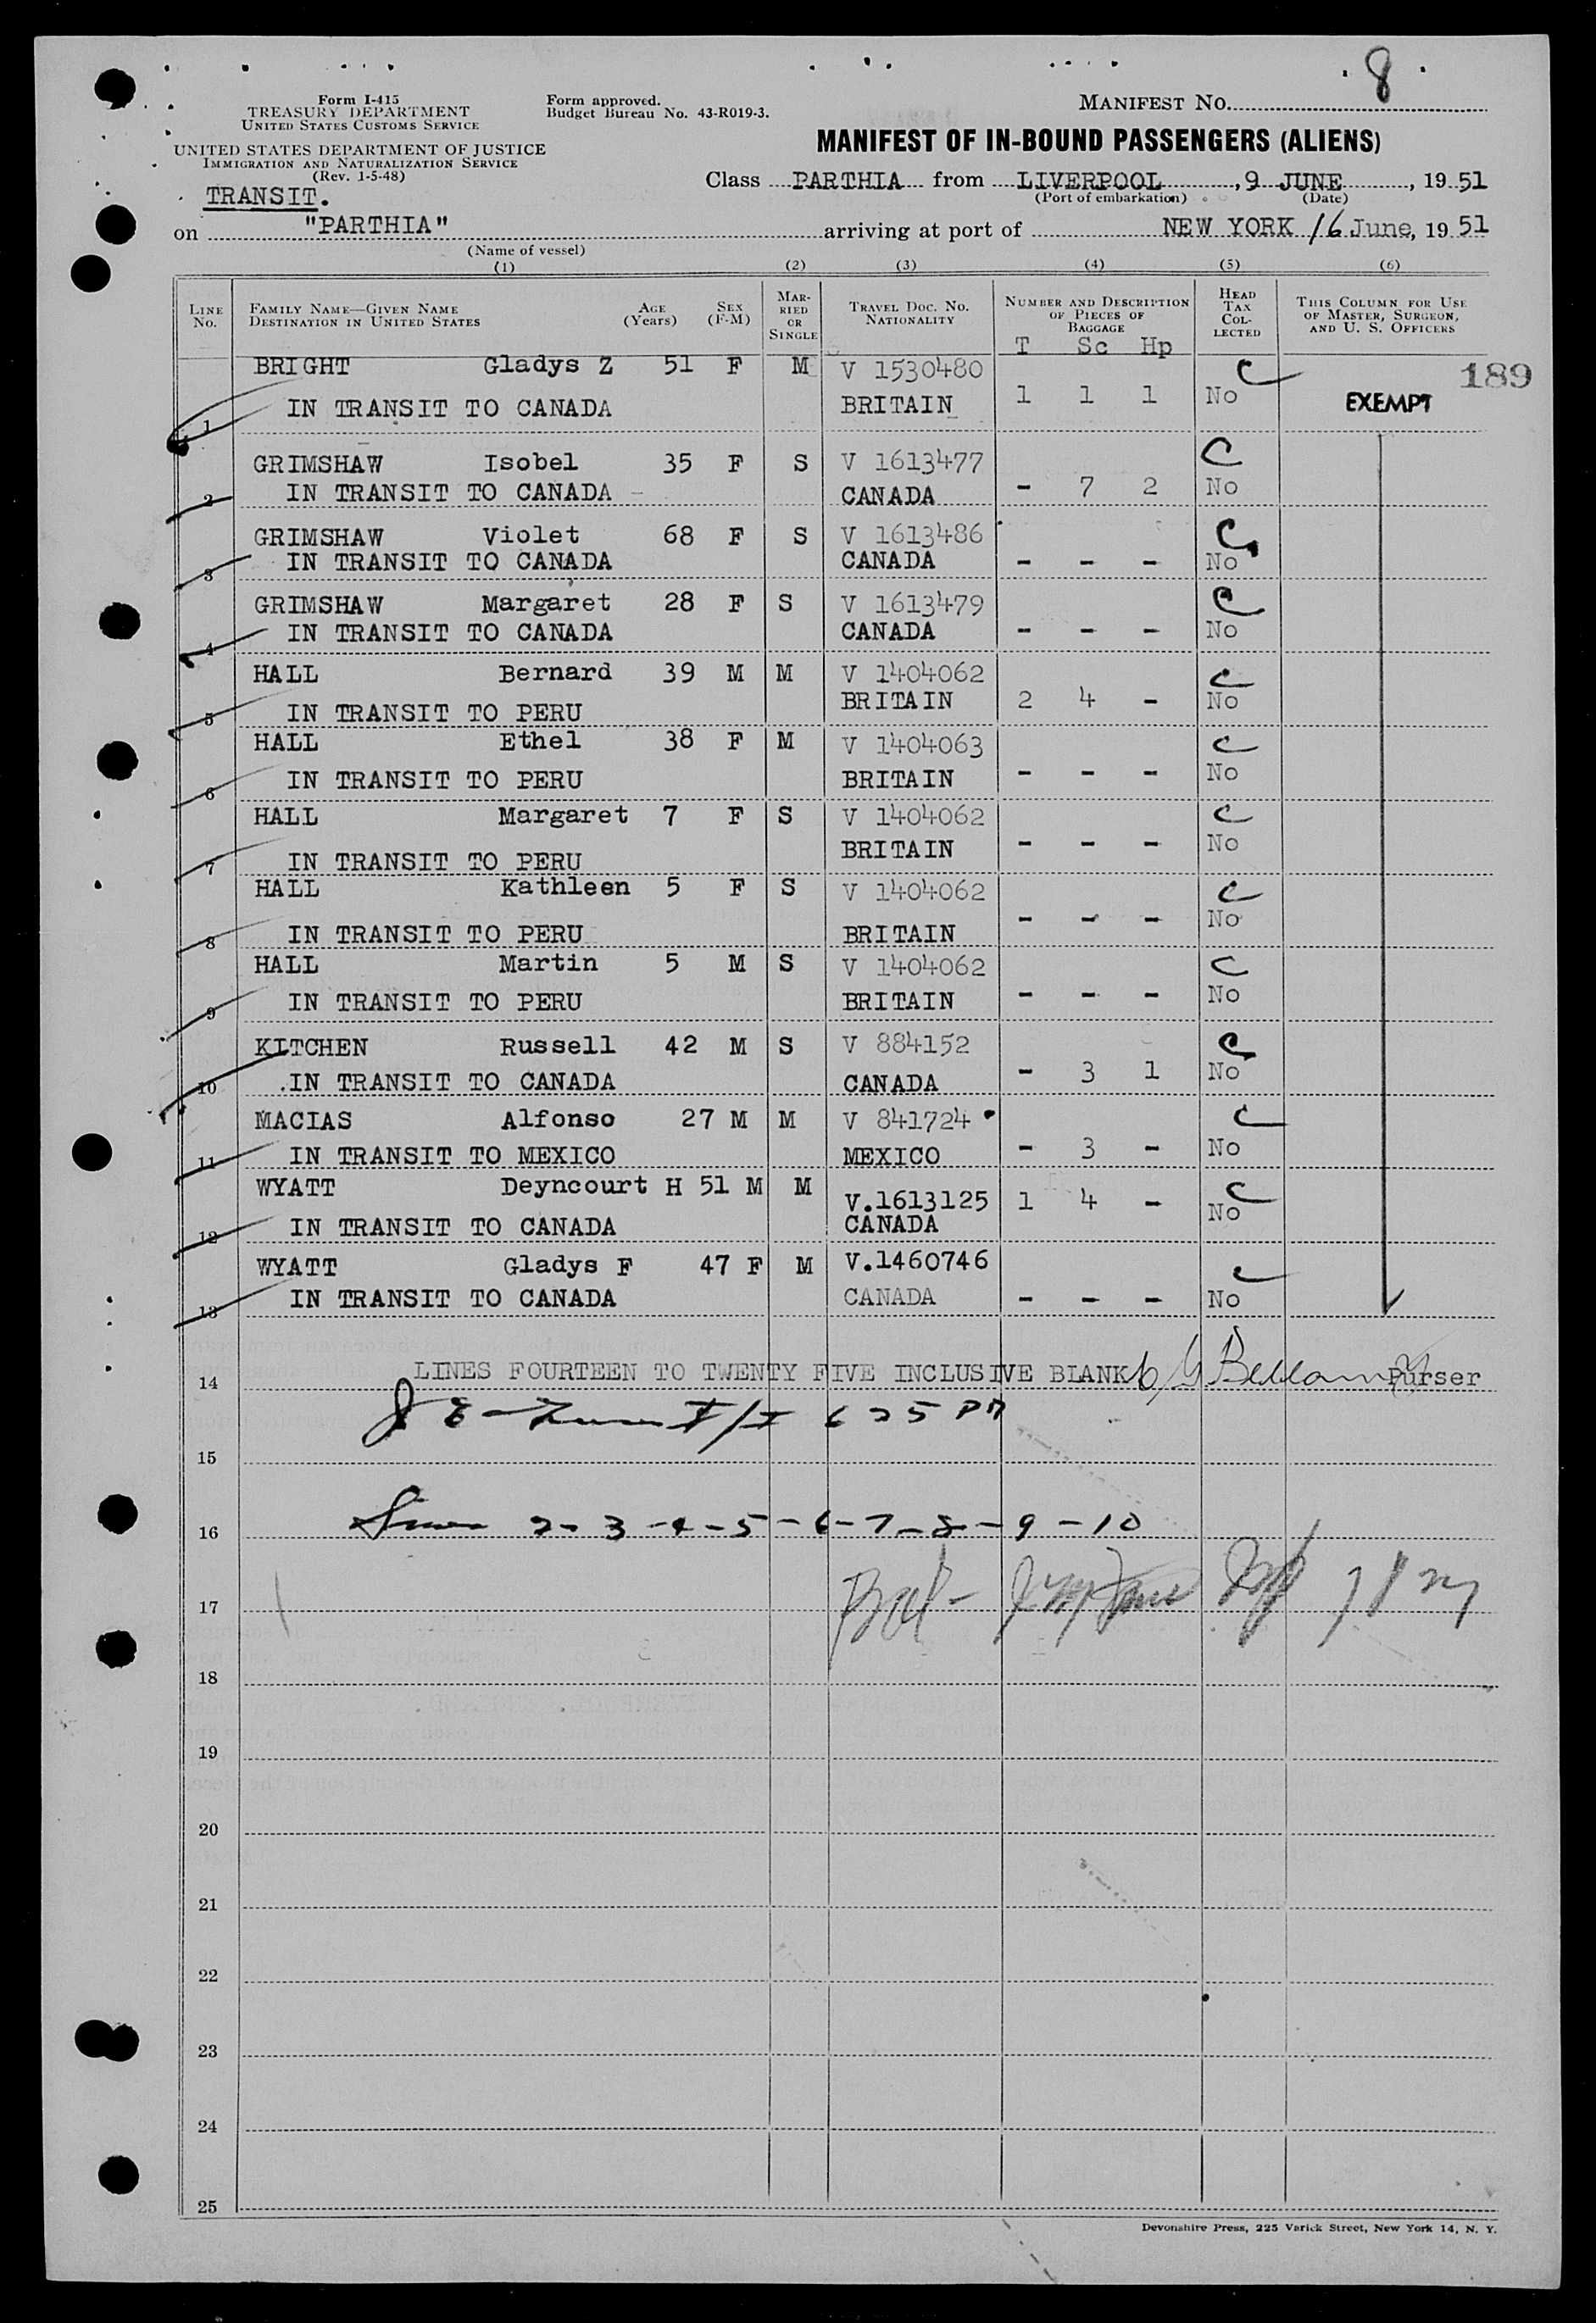 8
Form I-415
TREASURY DEPARTMENT
UNITED STATES CUSTOMS SERVICE
Form approved.
Budget Bureau No. 43-R019-3.
MANIFEST NO.
UNITED STATES DEPARTMENT OF JUSTICE
IMMIGRATION AND NATURALIZATION SERVICE
(Rev. 1-5-48)
MANIFEST OF IN-BOUND PASSENGERS (ALIENS)
TRANSIT.
Class PARTHIA from LIVERPOOL, 9 JUNE, 19 51
(Port of embarkation) (Date)
on "PARTHIA" arriving at port of NEW YORK 16 June, 19 51
(Name of vessel)
(1) (2) (3) (4) (5) (6)
LINE No. FAMILY NAME—GIVEN NAME DESTINATION IN UNITED STATES AGE (Years) SEX (F-M) MARRIED OR SINGLE TRAVEL DOC. NO. NATIONALITY NUMBER AND DESCRIPTION OF PIECES OF BAGGAGE HEAD TAX COLLECTED THIS COLUMN FOR USE OF MASTER, SURGEON, AND U. S. OFFICERS
T Sc Hp
189
BRIGHT Gladys Z 51 F M V 1530480 C
1 IN TRANSIT TO CANADA BRITAIN 1 1 1 No EXEMPT
GRIMSHAW Isobel 35 F S V 1613477 C
2 IN TRANSIT TO CANADA - CANADA - 7 2 No
GRIMSHAW Violet 68 F S V 1613486 C
3 IN TRANSIT TO CANADA CANADA - - - No
GRIMSHAW Margaret 28 F S V 1613479 C
4 IN TRANSIT TO CANADA CANADA - - - No
HALL Bernard 39 M M V 1404062 C
5 IN TRANSIT TO PERU BRITAIN 2 4 - No
HALL Ethel 38 F M V 1404063 C
6 IN TRANSIT TO PERU BRITAIN - - - No
HALL Margaret 7 F S V 1404062 C
7 IN TRANSIT TO PERU BRITAIN - - - No
HALL Kathleen 5 F S V 1404062 C
8 IN TRANSIT TO PERU BRITAIN - - - No
HALL Martin 5 M S V 1404062 C
9 IN TRANSIT TO PERU BRITAIN - - - No
KITCHEN Russell 42 M S V 884152 C
10 IN TRANSIT TO CANADA CANADA - 3 1 No
MACIAS Alfonso 27 M M V 841724 C
11 IN TRANSIT TO MEXICO MEXICO - 3 - No
WYATT Deyncourt H 51 M M V.1613125 1 4 - C
12 IN TRANSIT TO CANADA CANADA No
WYATT Gladys F 47 F M V.1460746 C
13 IN TRANSIT TO CANADA CANADA - - - No
14 LINES FOURTEEN TO TWENTY FIVE INCLUSIVE BLANK Bellamy Purser
6 25 PM
15
16 2-3-4-5-6-7-8-9-10
17
18
19
20
21
22
23
24
25
Devonshire Press, 225 Varick Street, New York 14, N. Y.